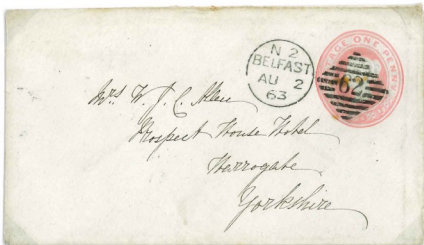 N 2
BELFAST
AU 2
63
POSTAGE ONE PENNY
62
Mrs W. J. C. Allen
Prospect House Hotel
Harrogate
Yorkshire